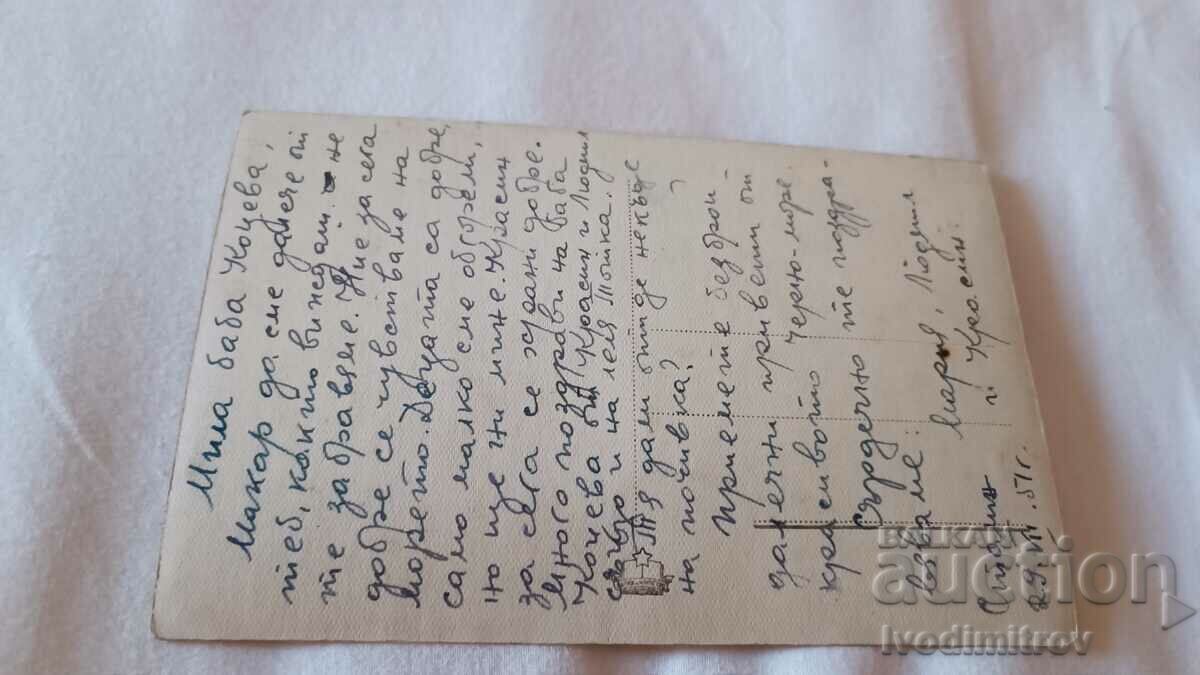 Мила баба Коцева,
Макар да сме далече от
теб, както виждаш не
те забравяме. Ние за сега
добре се чувстваме на
морето. Децата са добре,
само малко сме обгорели,
но ще ни мине. Красин
за сега се храни добре.
Много поздрави на баба
Коцева от Красин и Людмил
също и на леля Тотка.
Тя дали отиде некъде
на почивка?
Приемете безброй
далечни привети от
красивото Черно-море.
Сърдечно те поздра-
вяваме:
Мария, Людмил
и Красин.
29. VII. 51 г.
BALKAN
auction
Ivodimitrov